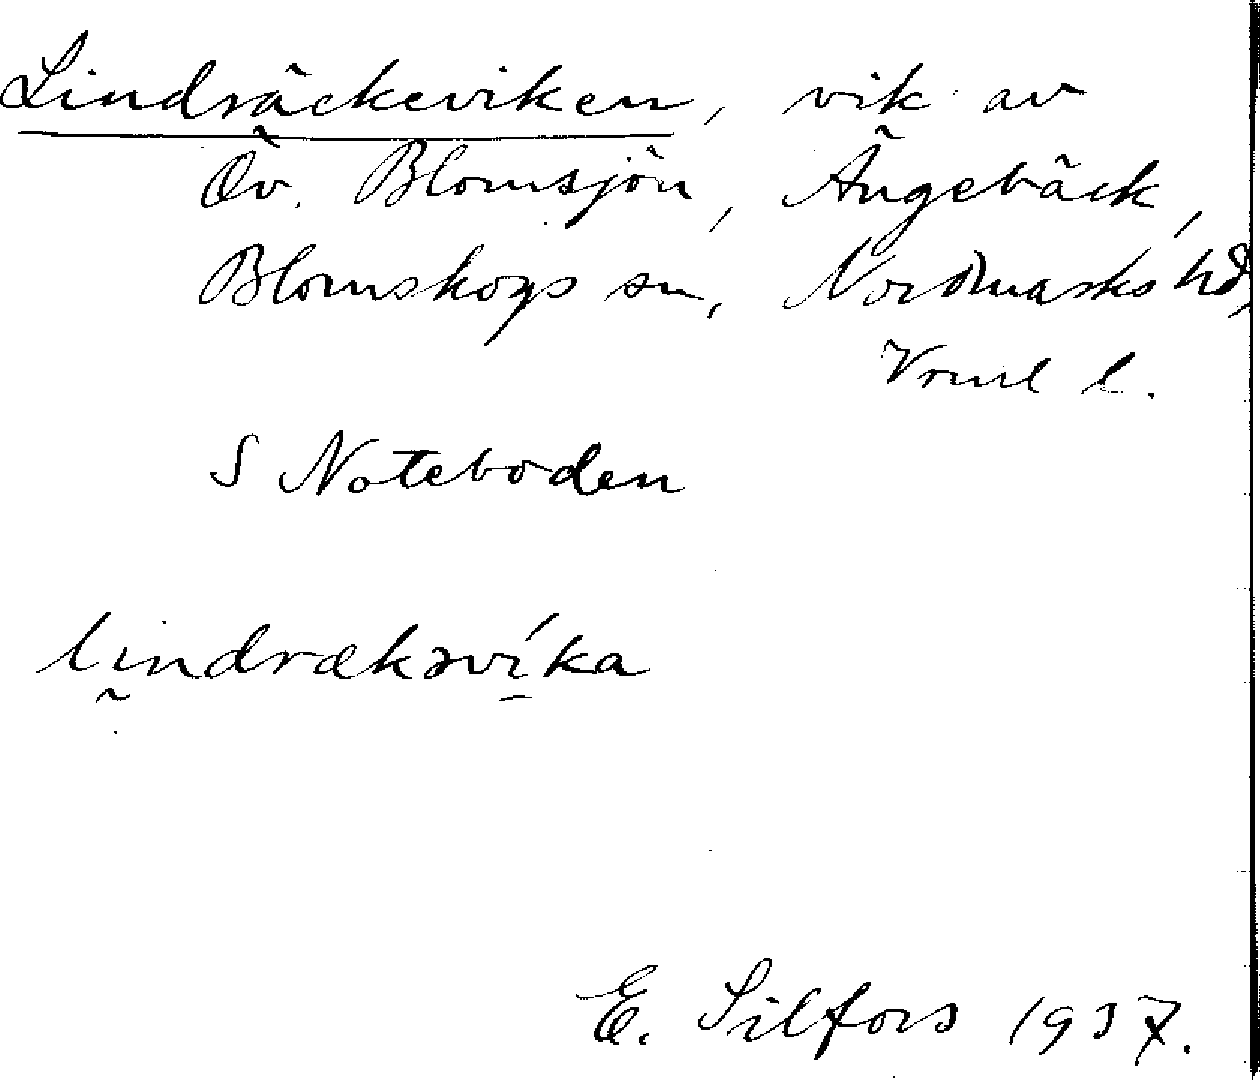 Lindräckeviken, vik av
Öv. Blomsjön, Ängebäck,
Blomskogs sn, Nordmarks hd,
Vrml l.
S Noteboden
lindrækəvíka
E. Silfors 1937.